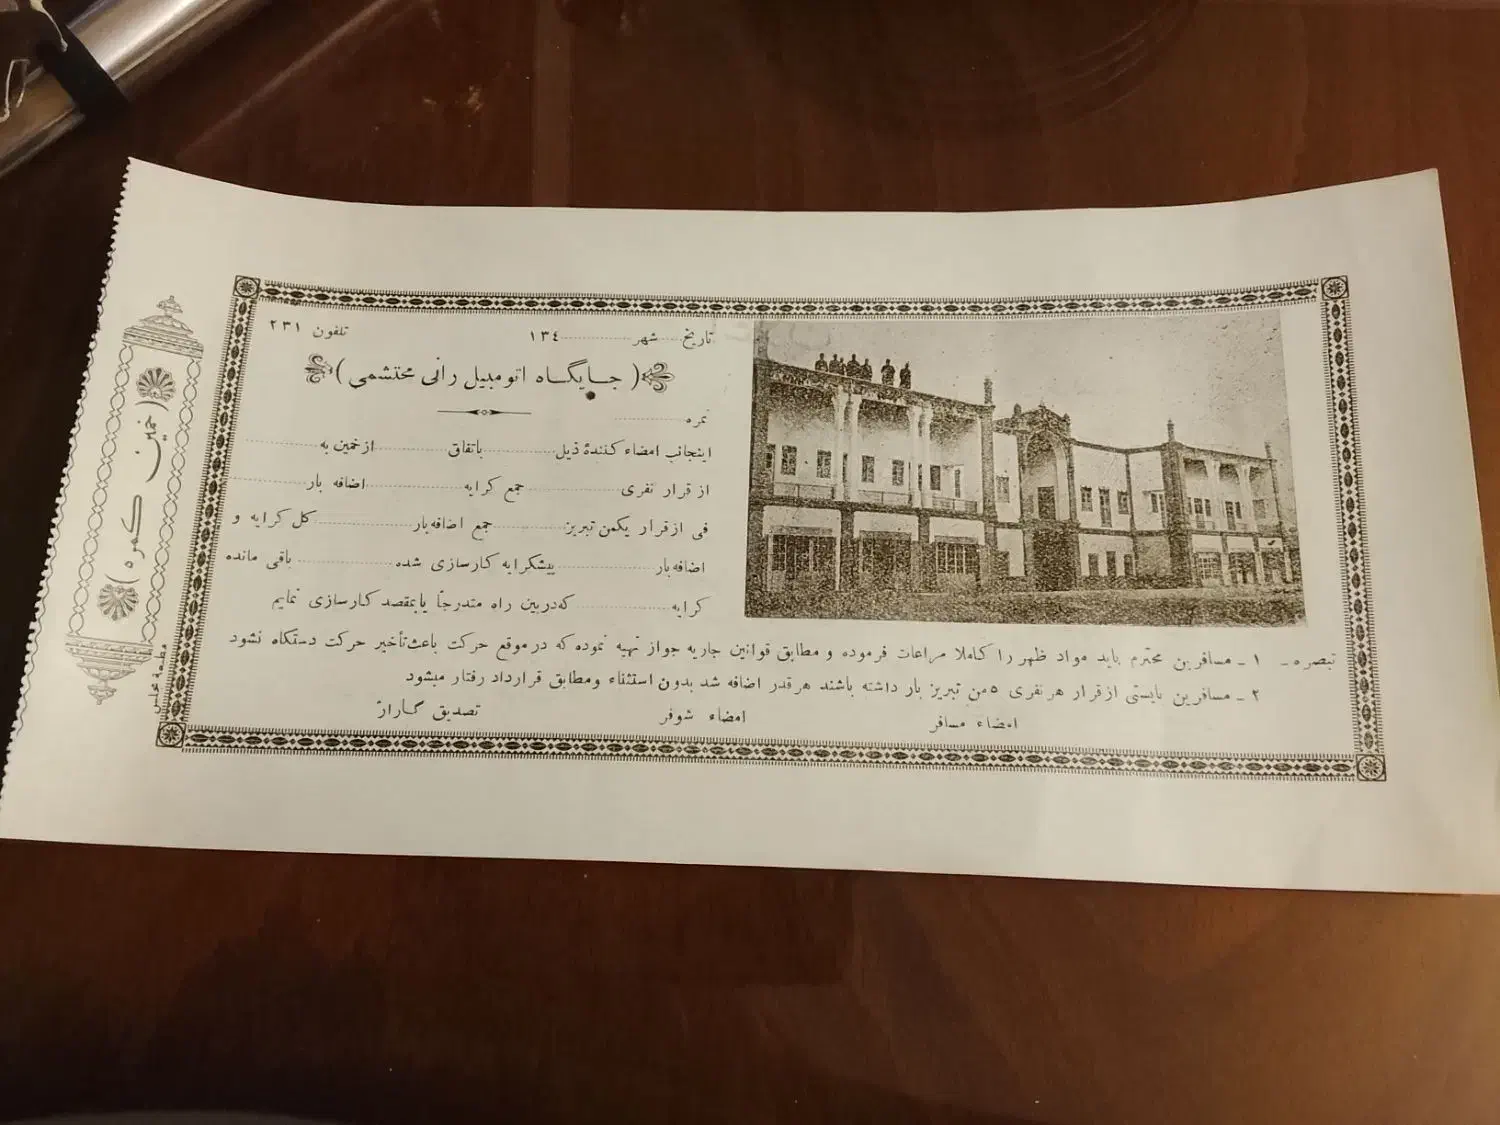 تاریخ ........ شهر ................ ١٣٤ تلفون ٢٣١
( جایگاه اتومبیل رانی محتشمی )
نمره ................
اینجانب امضاء کنندهٔ ذیل ................ باتفاق ................ از خمین به ................
از قرار نفری ................ جمع کرایه ................ اضافه بار ................
فی از قرار یکمن تبریز ................ جمع اضافه‌بار ................ کل کرایه و
اضافه بار ................ پیشکرایه کارسازی شده ................ باقی مانده
کرایه ................ که در بین راه متدرجاً یا بمقصد کارسازی نمایم
تبصره ـ ١ ـ مسافرین محترم باید مواد ظهر را کاملا مراعات فرموده و مطابق قوانین جاریه جواز تهیه نموده که در موقع حرکت باعث تأخیر حرکت دستگاه نشود
٢ ـ مسافرین بایستی از قرار هر نفری ٥ من تبریز بار داشته باشند هر قدر اضافه شد بدون استثناء و مطابق قرارداد رفتار میشود
امضاء مسافر امضاء شوفر تصدیق گاراژ
( خمین کمره )
مطبعهٔ مجلس